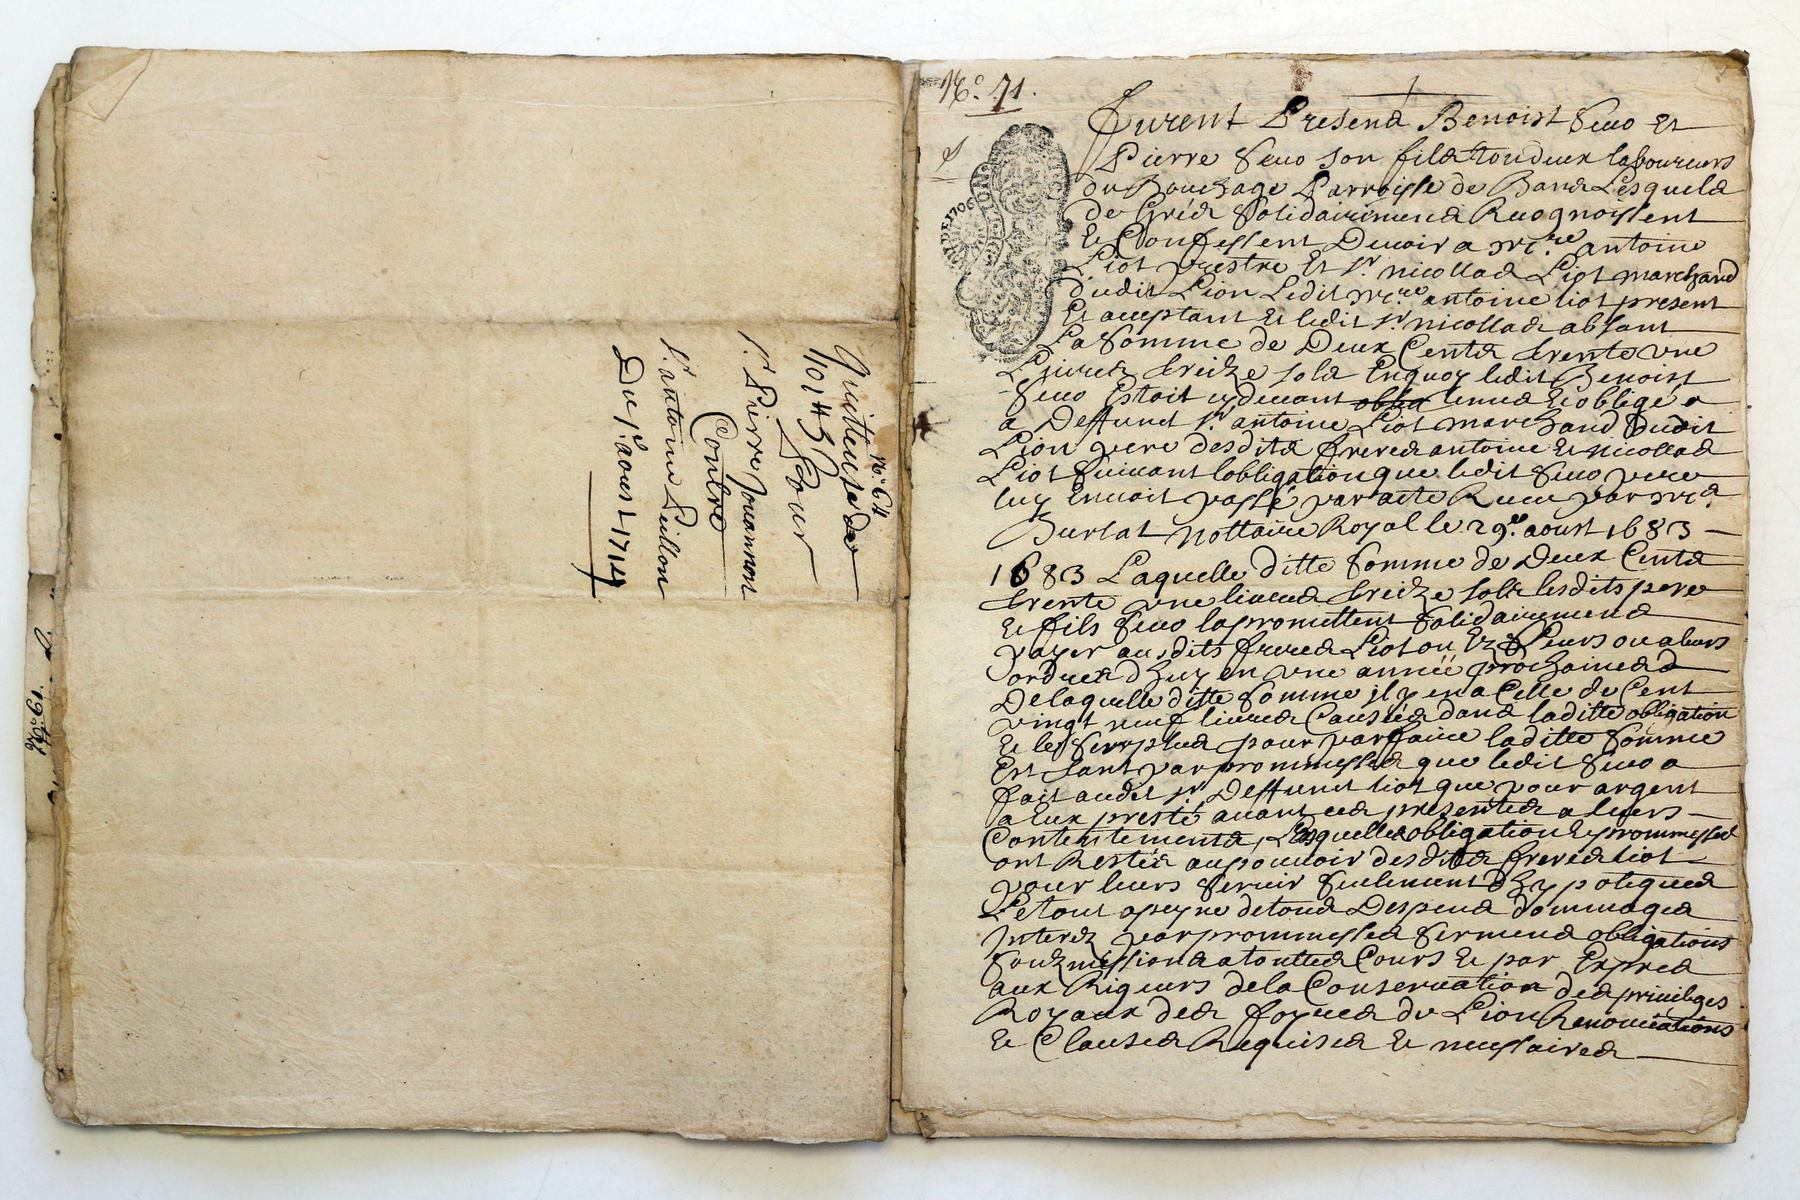 Quittense de
No. 64
101 ₶ 3 s Pour
Sr. Pierre Jouannon
Contre
Sr. antoine Guillon
Du 1er. aoust 1714
No. 71.
Furent Presens Benoist Seuo Et
Pierre Seuo son fils tou deux laboureurs
du Bouchage Parroisse de Bans Lesquels
de Gréz Solidairement Recognoissent
Et Confessent Deuoir a Mre. antoine
Liot prestre Et Sr. nicollas Liot marchand
dudit Lion Ledit Mre. antoine liot present
Et acceptant Et ledit Sr. nicollas absant
La Somme de Deux Cents trente vne
Liures treize sols Enquoy ledit Benoist
Seuo Estoit cydeuant tenus Et obligé a
a Deffunct Sr. antoine Liot marchand Dudit
Lion pere desdits freres antoine Et nicollas
Liot Suiuant lobligation que ledit Seuo pere
luy En auoit passé par acte Receu par Me.
Burlat nottaire Royal le 29e. aoust 1683
1683 Laquelle ditte Somme de Deux Cents
trente vne liures treize sols lesdits pere
Et fils Seuo la promettent Solidairement
payer ausdits freres Liot ou Ez Leurs ou a leurs
ordres dhuy en vne année prochaines
De laquelle ditte Somme il y en a Celle de Cent
vingt neuf liures Causées dans laditte obligation
Et le Surplus pour parfaire laditte Somme
Estant par prommesses que ledit Seuo a
fait audit Sr. Deffunct liot que pour argent
a Eux presté auant ces presentes a leurs
Contentements, Lesquelles obligation Et prommesses
ont Restés au pouuoir desdits freres liot
pour leurs Seruir Seulement dhypoteques
Le tout a peyne de tous Despens dommages
Interez par prommesses Serments obligations
Soubzmissions a touttes Cours Et par Expres
aux Rigueurs de la Conseruation des priuileges
Royaux des foyres de Lion Renonciations
Et Clauses Requises Et necessaires